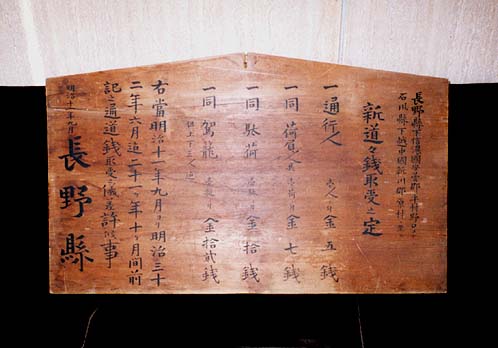 長野縣下信濃國安曇郡平村野口ヨリ
石川縣下越中國新川郡原村ニ至ル
新道々錢取受之定
一通行人 壱人ニ付 金五錢
一同荷負人 金七錢
一同駄荷 金拾錢
一同駕籠 金拾貳錢
右當明治十一年九月ヨリ明治三十
二年六月迠二十一年十ヶ月間前
記之通道錢取受候儀差許候事
明治十一年八月
長野縣